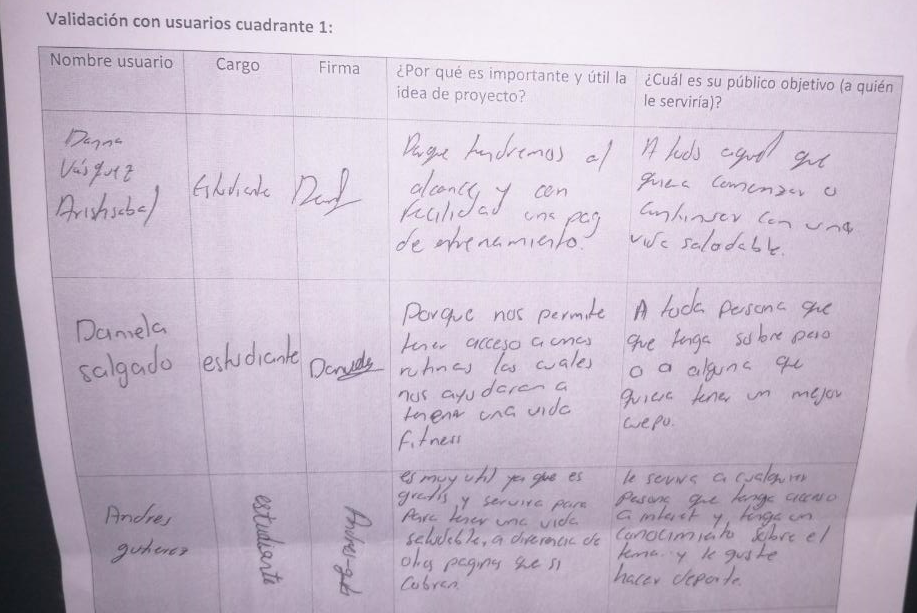 Validación con usuarios cuadrante 1:
Nombre usuario
Cargo
Firma
¿Por qué es importante y útil la
idea de proyecto?
¿Cuál es su público objetivo (a quién
le serviría)?
Danna
Vásquez
Aristisabal
Estudiante
Porque tendremos al
alcance y con
facilidad una pag
de entrenamiento.
A todo aquel que
quiera comenzar o
continuar con una
vida saludable.
Daniela
salgado
estudiante
Daniela
Porque nos permite
tener acceso a unas
rutinas las cuales
nos ayudaran a
tener una vida
fitness
A toda persona que
que tenga sobre peso
o a alguna que
quiera tener un mejor
cuerpo.
Andres
gutierrez
estudiante
es muy util ya que es
gratis y servira para
Para tener una vida
saludable, a diferencia de
otras paginas que si
cobran.
le servira a cualquier
persona que tenga acceso
a internet y tenga un
conocimiento sobre el
tema y le guste
hacer deporte.